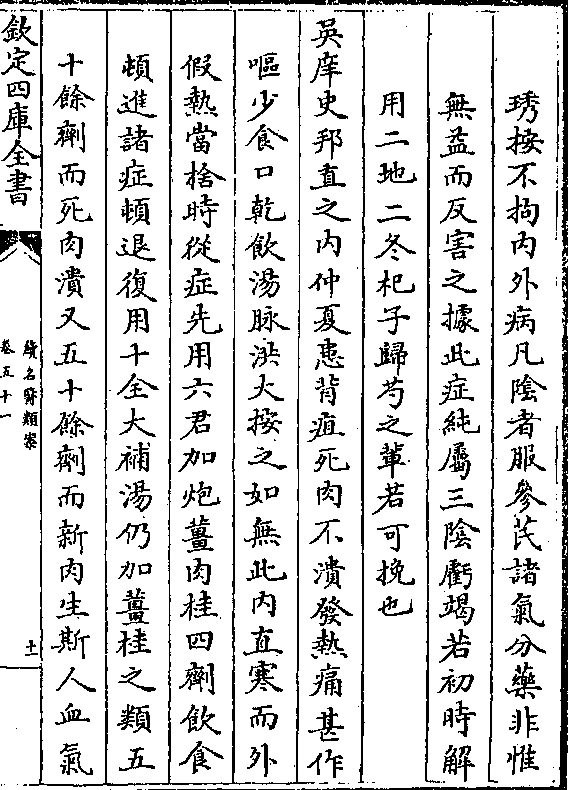 琇按不拘內外病凡陰者服參芪諸氣分藥非惟
無益而反害之據此症純屬三陰虧竭若初時解
用二地二冬杞子歸芍之輩若可挽也
吳庠史邦直之內仲夏患背疽死肉不潰發熱痛甚作
嘔少食口乾飲湯脉洪大按之如無此內直寒而外
假熱當捨時從症先用六君加炮薑肉桂四劑飲食
頓進諸症頓退復用十全大補湯仍加薑桂之類五
十餘劑而死肉潰又五十餘劑而新肉生斯人血氣
欽定四庫全書
續名醫類案
卷五十一
十一